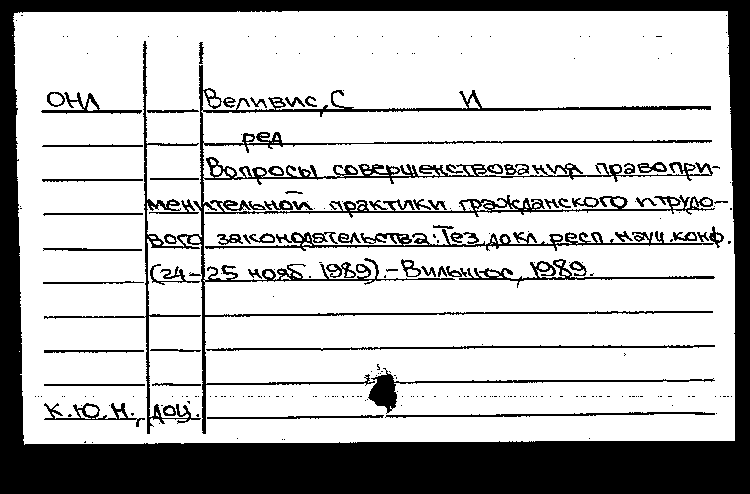 ОНЛ Веливис, С И
ред
Вопросы совершенствования правопри-
менительной практики гражданского и трудо-
вого законодательства: Тез. докл. респ. науч. конф.
(24-25 нояб. 1989).-Вильнюс, 1989.
К.Ю.Н., доц.